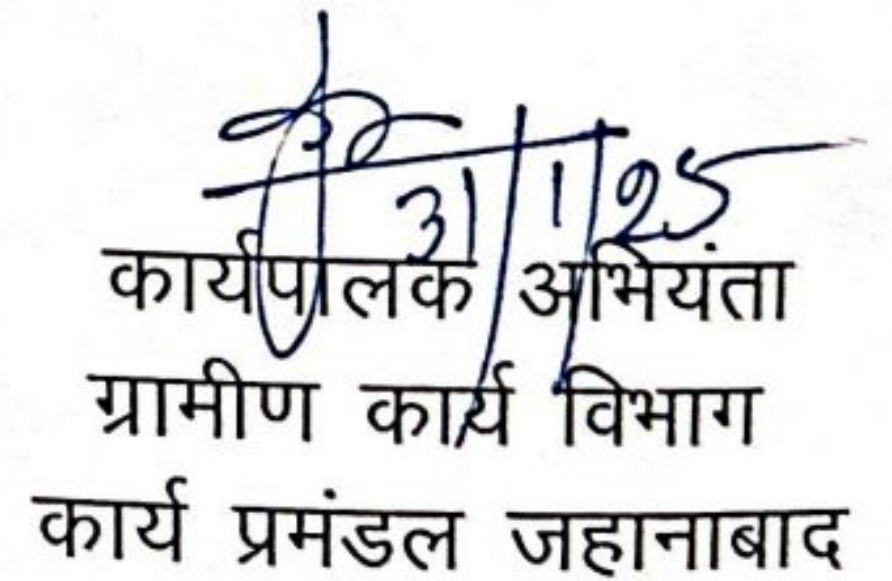 31/1/25
कार्यपालक अभियंता
ग्रामीण कार्य विभाग
कार्य प्रमंडल जहानाबाद